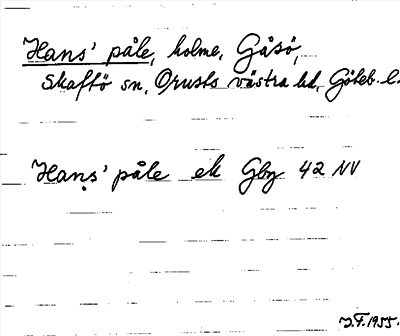 Hans' påle, holme, Gåsö,
Skaftö sn, Orusts västra hd, Göteb. l.
Hans' påle ek Gbg 42 NV
J.F. 1955.